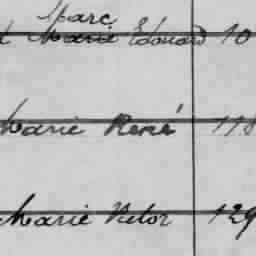 Marc
Marie Edouard 10
Marie René 118
Marie Victor 129